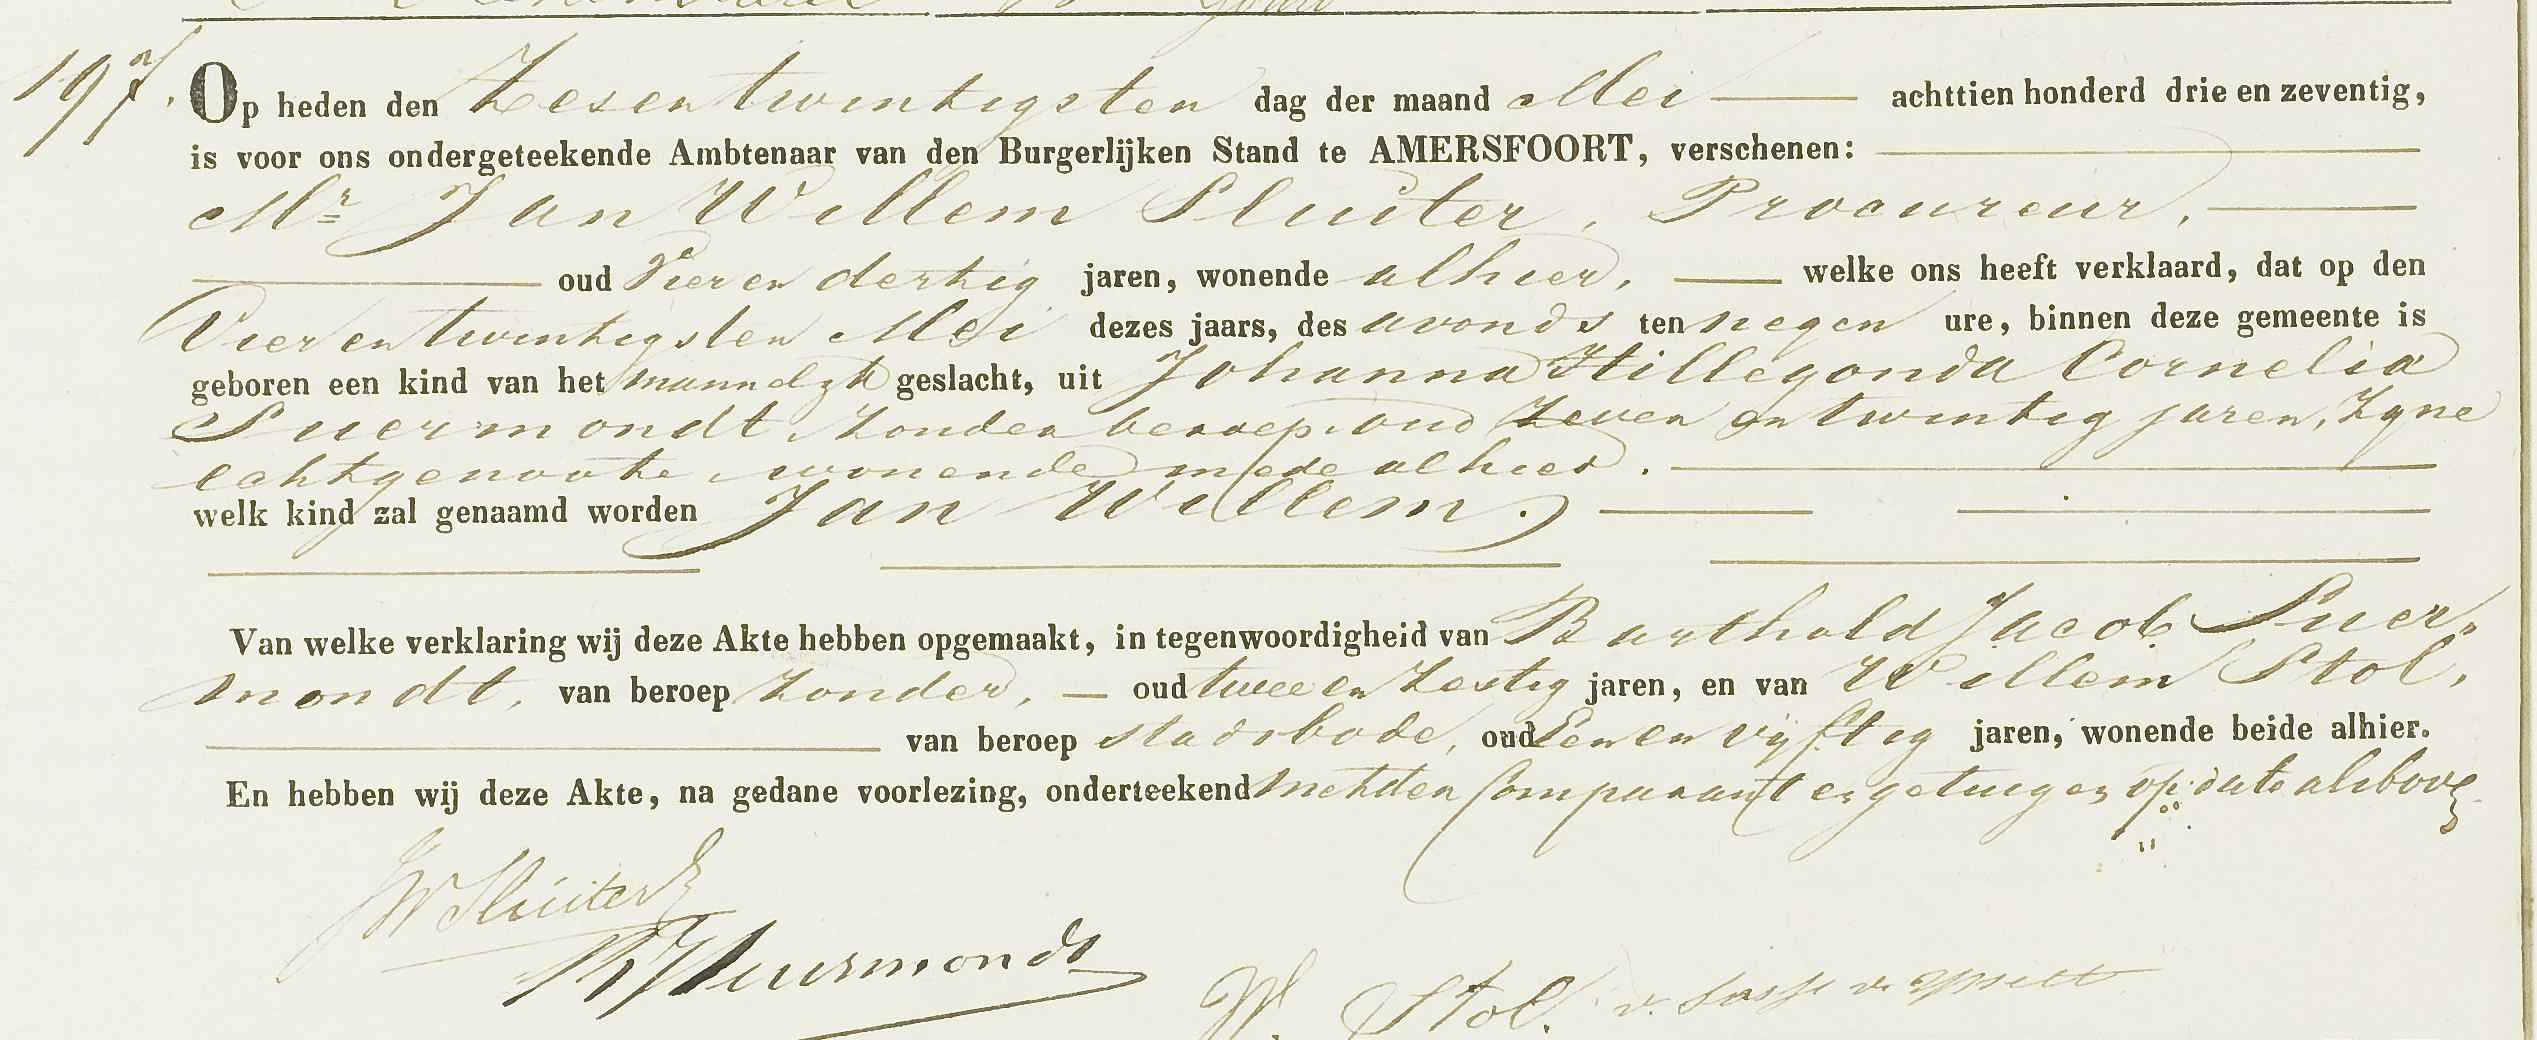 197.
Op heden den Zesentwintigsten dag der maand Mei achttien honderd drie en zeventig,
is voor ons ondergeteekende Ambtenaar van den Burgerlijken Stand te AMERSFOORT, verschenen:
Mr Jan Willem Sluiter, Procureur,
oud Vier en dertig jaren, wonende alhier, welke ons heeft verklaard, dat op den
Vier en twintigsten Mei dezes jaars, des avonds ten negen ure, binnen deze gemeente is
geboren een kind van het mannelijk geslacht, uit Johanna Hillegonda Cornelia
Suermondt, zonder beroep, oud zeven en twintig jaren, zyne
echtgenoote, wonende mede alhier.
welk kind zal genaamd worden Jan Willem.
Van welke verklaring wij deze Akte hebben opgemaakt, in tegenwoordigheid van Barthold Jacob Suer-
mondt, van beroep zonder, oud twee en zestig jaren, en van Willem Stol,
van beroep stadsbode, oud Een en vijftig jaren, wonende beide alhier.
En hebben wij deze Akte, na gedane voorlezing, onderteekend met den Comparant en getuigen op dato alsboven
JW Sluiter
Suermondt
W. Stol.